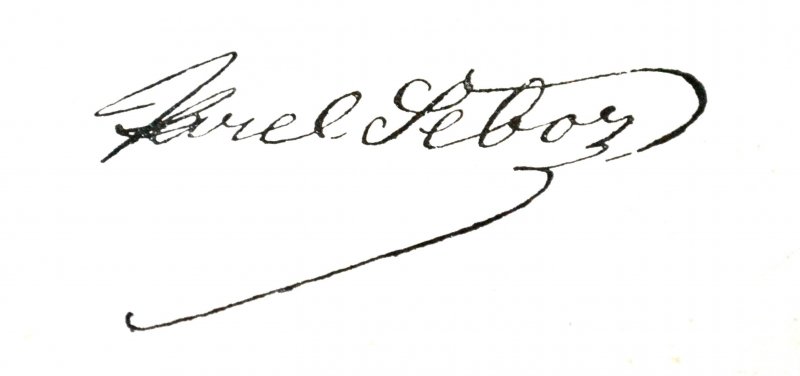 Karel Šebor